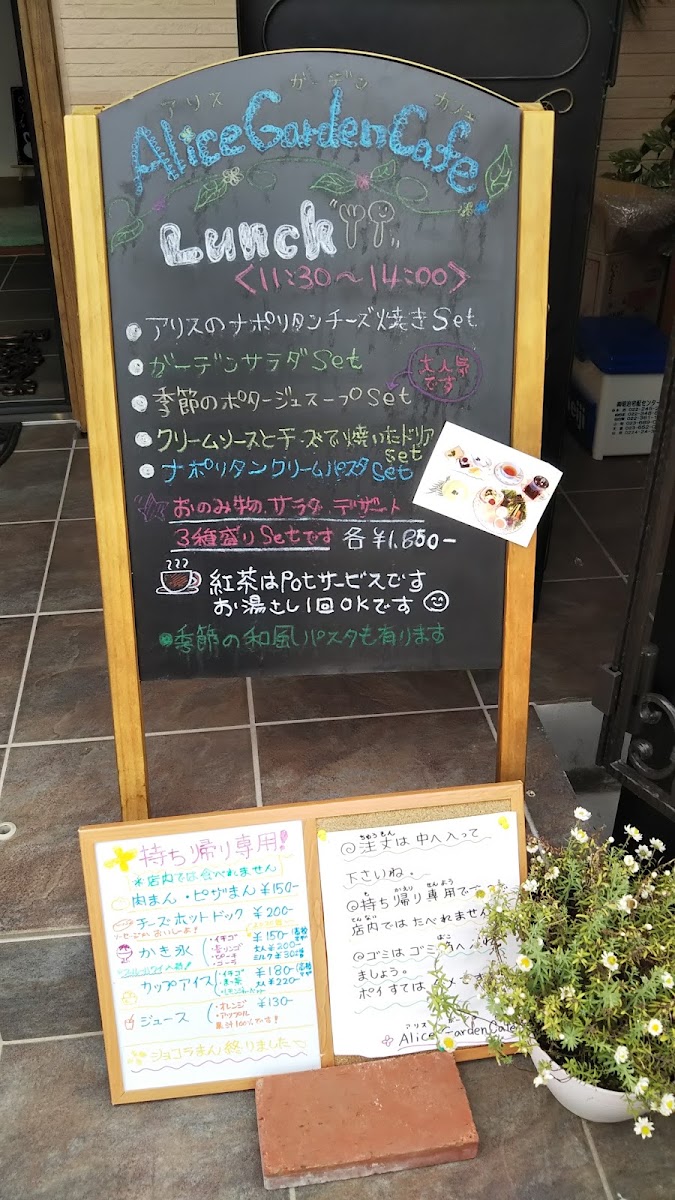 アリス ガーデン カフェ
Alice Garden Cafe
Lunch
<11:30~14:00>
●アリスのナポリタンチーズ焼きSet
●ガーデンサラダSet
●季節のポタージュスープSet
大人気です
●クリームソースとチーズで焼いたドリアset
●ナポリタンクリームパスタSet
☆おのみ物、サラダ、デザート
3種盛りSetです 各¥1,850-
紅茶はPotサービスです
お湯さし1回OKです
●季節の和風パスタも有ります
持ち帰り専用!
*店内では食べれません
肉まん・ピザまん ¥150-
チーズホットドック ¥200-
かき氷
・イチゴ
・ピーチ
・コーラ
¥150-
大人¥200-
カップアイス
・イチゴ
¥180-
大人¥220-
ジュース
・オレンジ
・アップル
果汁100%です!
¥130-
ショコラまん終りました
ちゅうもん
◎注文は中へ入って
下さいね。
も かえり せんよう
◎持ち帰り専用で
てんない
店内ではたべれません
◎ゴミはゴミ
ましょう。
ポイすては
アリス
Alice Garden Cafe